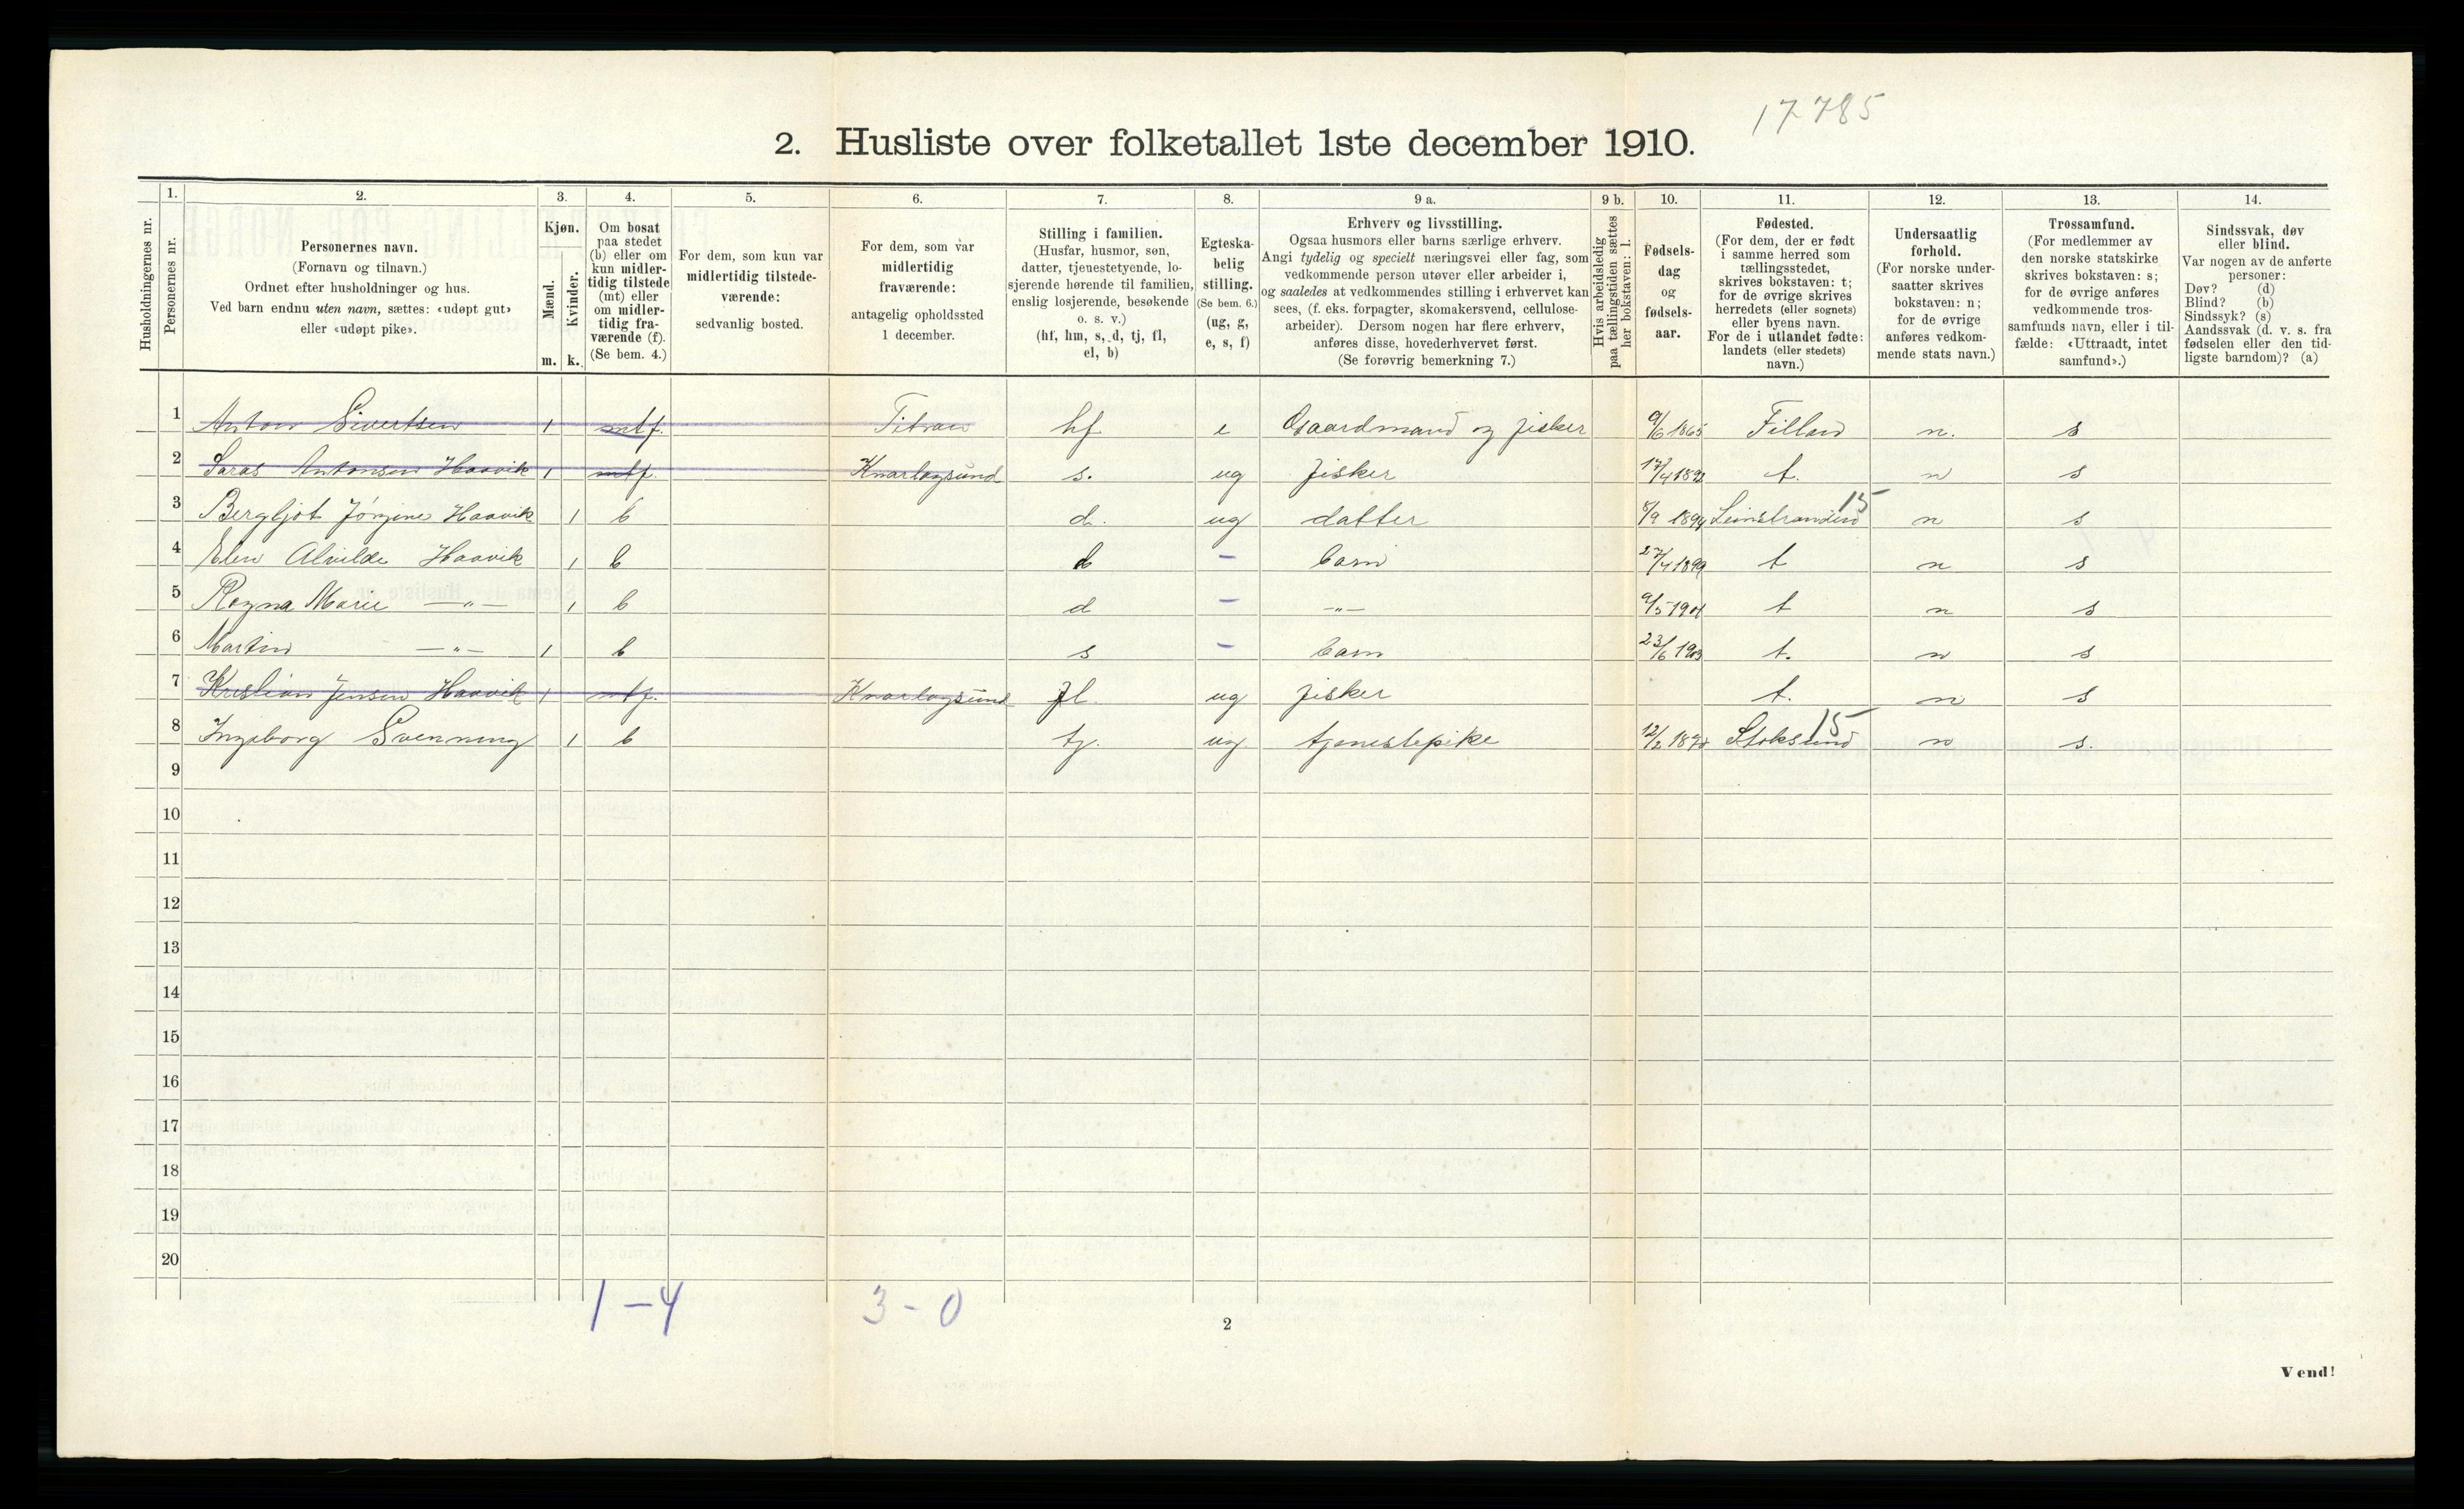 17785
2. Husliste over folketallet 1ste december 1910.
Husholdningernes nr.
1. Personernes nr.
2. Personernes navn.
(Fornavn og tilnavn.)
Ordnet efter husholdninger og hus.
Ved barn endnu uten navn, sættes: «udøpt gut»
eller «udøpt pike».
3. Kjøn.
Mænd. Kvinder.
m. k.
4. Om bosat
paa stedet
(b) eller om
kun midler-
tidig tilstede
(mt) eller
om midler-
tidig fra-
værende (f).
(Se bem. 4.)
5. For dem, som kun var
midlertidig tilstede-
værende:
sedvanlig bosted.
6. For dem, som var
midlertidig
fraværende:
antagelig opholdssted
1 december.
7. Stilling i familien.
(Husfar, husmor, søn,
datter, tjenestetyende, lo-
sjerende hørende til familien,
enslig losjerende, besøkende
o. s. v.)
(hf, hm, s, d, tj, fl,
el, b)
8. Egteska-
belig
stilling.
(Se bem. 6.)
(ug, g,
e, s, f)
9 a. Erhverv og livsstilling.
Ogsaa husmors eller barns særlige erhverv.
Angi tydelig og specielt næringsvei eller fag, som
vedkommende person utøver eller arbeider i,
og saaledes at vedkommendes stilling i erhvervet kan
sees, (f. eks. forpagter, skomakersvend, cellulose-
arbeider). Dersom nogen har flere erhverv,
anføres disse, hovederhvervet først.
(Se forøvrig bemerkning 7.)
9 b. Hvis arbeidsledig
paa tællingstiden sættes
her bokstaven: l.
10. Fødsels-
dag
og
fødsels-
aar.
11. Fødested.
(For dem, der er født
i samme herred som
tællingsstedet,
skrives bokstaven: t;
for de øvrige skrives
herredets (eller sognets)
eller byens navn.
For de i utlandet fødte:
landets (eller stedets)
navn.)
12. Undersaatlig
forhold.
(For norske under-
saatter skrives
bokstaven: n;
for de øvrige
anføres vedkom-
mende stats navn.)
13. Trossamfund.
(For medlemmer av
den norske statskirke
skrives bokstaven: s;
for de øvrige anføres
vedkommende tros-
samfunds navn, eller i til-
fælde: «Uttraadt, intet
samfund».)
14. Sindssvak, døv
eller blind.
Var nogen av de anførte
personer:
Døv? (d)
Blind? (b)
Sindssyk? (s)
Aandssvak (d. v. s. fra
fødselen eller den tid-
ligste barndom)? (a)
1 Anton Sivertsen 1 mtf. Titran hf e Gaardmand og fisker 9/6 1865 Fillan n. s
2 Antonsen Haavik 1 mtf. Knarlagsund s. ug fisker t. n s
3 Bergljot Jørgine Haavik 1 b d. ug datter 8/9 15 n s
4 Elen Alvilde Haavik 1 b - barn 27/4 1899 t n s
5 Ragna Marie —"— 1 b d - —"— 9/5 t n s
6 Martin —"— 1 b s - barn 23/6 1903 t. n s
7 Kristian Jensen Haavik 1 mtf. Knarlagsund fl. ug fisker t. n s
8 Ingeborg Svenning 1 b tj. ug tjenestepike 12/2 Stoksund 15 n s.
9
10
11
12
13
14
15
16
17
18
19
20
1 - 4 3 - 0
2
Vend!